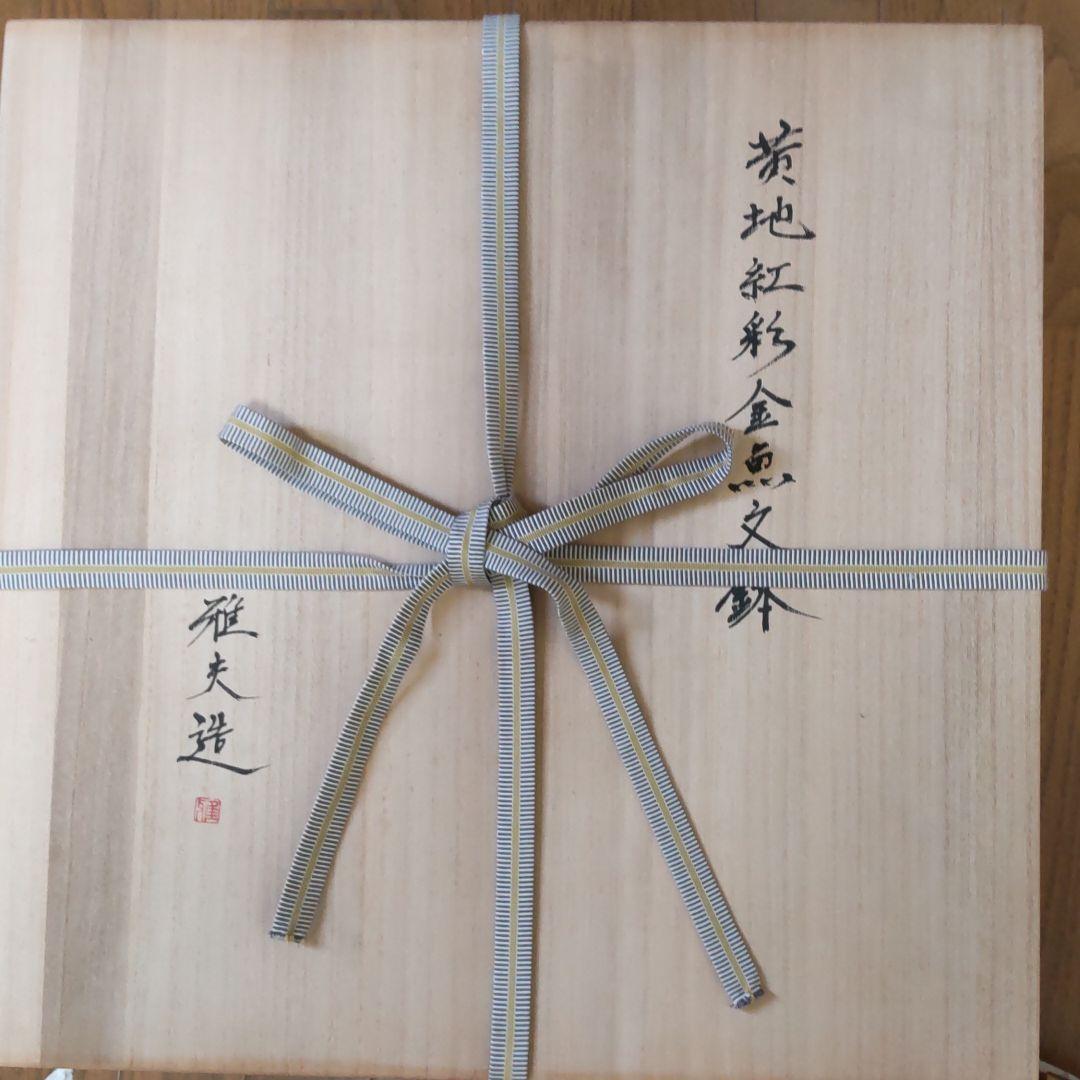 黄地紅彩金魚文鉢
雅夫造